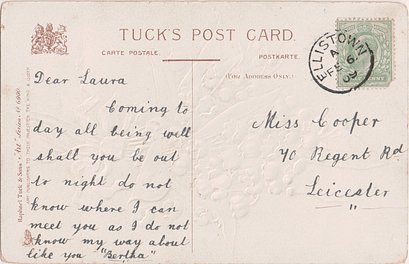 TUCK'S POST CARD.
CARTE POSTALE.
POSTKARTE.
(FOR ADDRESS ONLY.)
ELLISTOWN
A
FE 6
09
Dear Laura
Coming to
day all being will
shall you be out
to night do not
know where I can
meet you as I do not
know my way about
like you "Bertha"
Miss Cooper
70 Regent Rd
Leicester
"
Raphael Tuck & Sons' "Art" Series